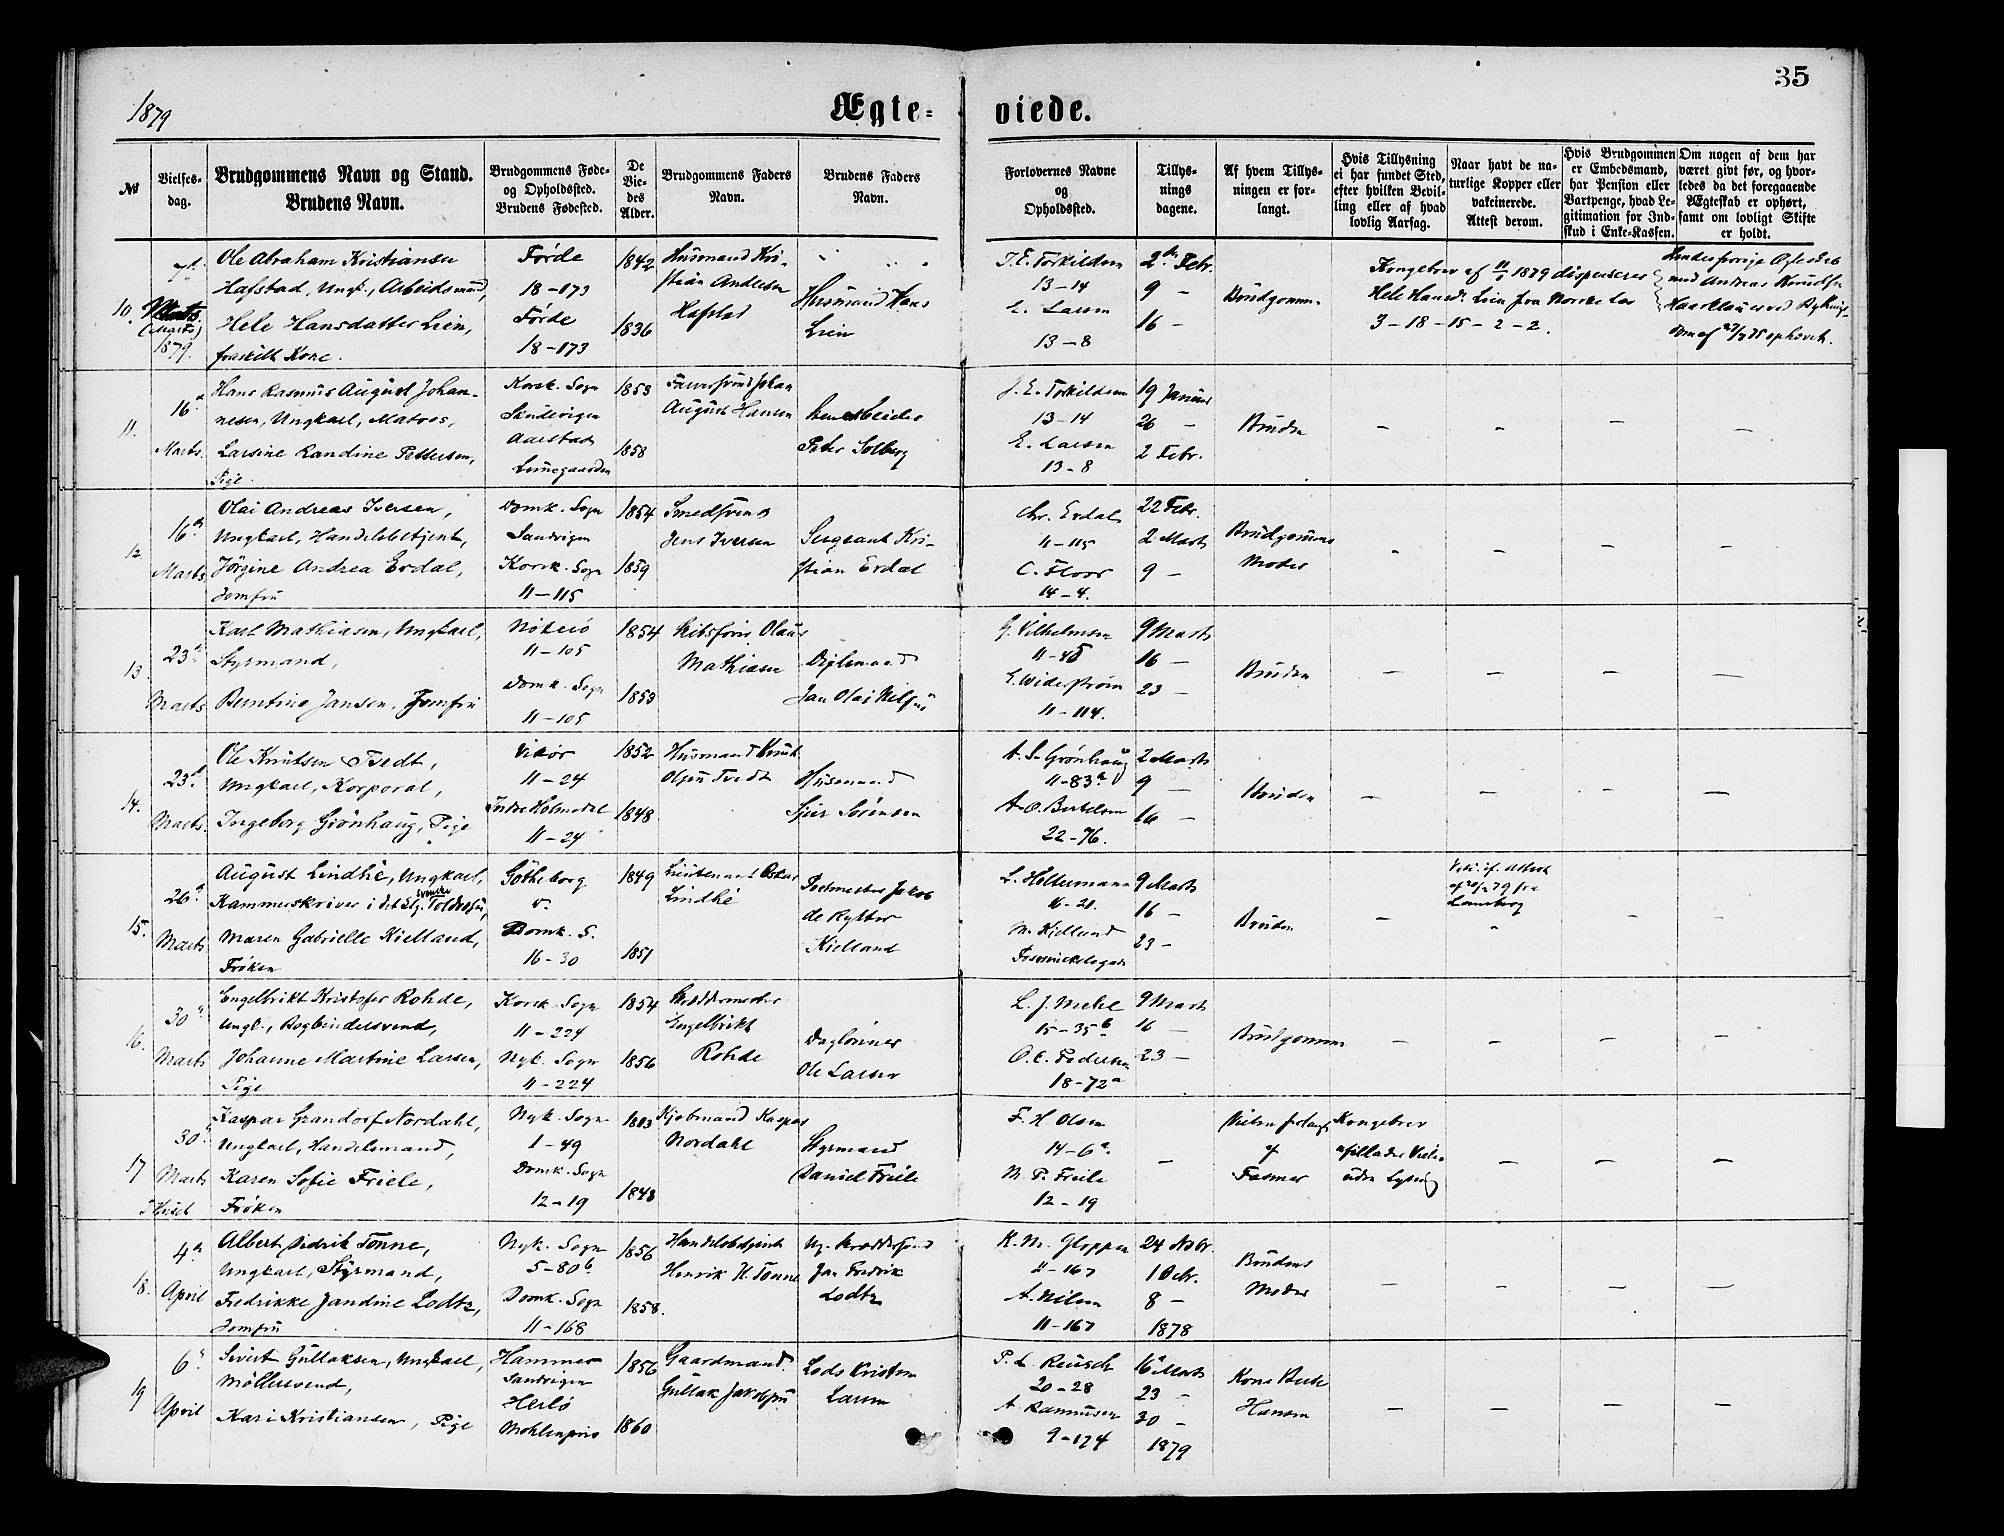 35
1879
Ægte- viede.
№
Vielses-
dag.
Brudgommens Navn og Stand.
Brudens Navn.
Brudgommens Føde-
og Opholdssted.
Brudens Fødested.
De
Vie-
des
Alder.
Brudgommens Faders
Navn.
Brudens Faders
Navn.
Forlovernes Navne
og
Opholdssted.
Tillys-
nings
dagene.
Af hvem Tillys-
ningen er for-
langt.
Hvis Tillysning
ei har fundet Sted,
efter hvilken Bevil-
ling eller af hvad
lovlig Aarsag.
Naar havt de na-
turlige Kopper eller
vakcinerede.
Attest derom.
Hvis Brudgommen
er Embedsmand,
har Pension eller
Vartpenge, hvad Le-
gitimation for Ind-
skud i Enke-Kassen.
Om nogen af dem har
været givt før, og hvor-
ledes da det foregaaende
Ægteskab er ophørt,
samt om lovligt Skifte
er holdt.
10.
7de
(Marts)
1879.
Ole Abraham Kristiansen
Hafstad, Ungk., Arbeidsmand,
Hele Hansdatter Lien,
fraskilt Kone.
Førde
18-173
Førde
18-173
1842
1836
Husmand Kri-
stian Andersen
Hafstad
Husmand Hans
Lien
T. E. Torkildsen
13-14
E. Larsen
13-8
2den Febr.
9 -
16 -
Brudgommen
Kongebrev af 11/1 1879 dispenserer
Hele Hansd. Lien fra Norske Lov
3-18-15-2-2.
med Andreas Knudsen
11.
16de
Marts.
Hans Rasmus August Johan-
nesen, Ungkarl, Matros,
Larsine Randine Pettersen,
Pige.
Korsk. Sogn
Sandvigen
Aarstad
1853
1858
August Hansen
Peter Solberg
J. E. Torkildsen
13-14
E. Larsen
13-8
19 Januar
26 -
2 Febr.
Bruden
12
16de
Marts
Olai Andreas Iversen,
Ungkarl, Handelsbetjent,
Jørgine Andrea Erdal,
Jomfru
Domk. Sogn
Sandvigen
Korsk. Sogn
11-115
1854
1859
Smedsvend
Jens Iversen
Sergeant Kri-
stian Erdal
Chr. Erdal
11-115
C. Floor
14-4.
22 Febr.
2 Marts
9 -
Brudgommens
Moder
13.
23de
Marts
Karl Mathiasen, Ungkarl,
Styrmand,
Berntine Jansen, Jomfru
Nøtterø
11-105
Domk. Sogn
11-105
1854
1853
Skibsfører Olaus
Mathiasen
Jan Olai
G. Vilhelmsen
11-45
E. Widerstrøm
11-114.
9 Marts
16 -
23 -
Bruden
14.
23de
Marts.
Ole Knutsen Tvedt,
Ungkarl, Korporal,
Ingeborg Grønhaug, Pige
Vikør
11-24
Indre Holmedal
11-24
1852
1848
Husmand Knut
Olsen Tvedt
Husmand
Sjur Sørensen
A. S. Grønhaug
11-83a
A. O. Bertelsen
22-76.
2 Marts
9 -
16 -
Bruden
15.
26de
Marts
August Lindhé, Ungkarl,
Kammerskriver i det Kgl. svenske Toldvæsen,
Maren Gabrielle Kielland,
Frøken
Gøtheborg
Domk. S.
16-30
1849
1851
Lieutenant Oskar
Lindhé
Postmester Jakob
de Rytter
Kielland
L. Holtermann
16-20.
M. Kielland
9 Marts
16 -
23 -
Bruden
16.
30de
Marts
Engelbrikt Kristofer Rohde,
Ungk., Bogbindersvend,
Johanne Martine Larsen,
Pige
Korsk. Sogn
11-224
Nyk. Sogn
11-224
1854
1856
Skreddermester
Engelbrikt
Rohde
Daglønner
Ole Larsen
L. J. Mehl
15-35b
O. C. Pedersen
18-72a
9 Marts
16 -
23 -
Brudgommen
17
30de
Marts
I Huset
Kaspar Grandorf Nordahl,
Ungkarl, Handelsmand,
Karen Sofie Friele,
Frøken
Nyk. Sogn
1-49
Domk. Sogn
12-19
1843
1848
Kjøbmand Kaspar
Nordahl
Styrmand
Daniel Friele
F. H. Olsen
14-6a
M. P. Friele
12-19
Vielsen forlangt
af
Fasmer
Kongebrev
tillader Vielse
uden Lysning
18.
4de
April
Albert Didrik Tønne,
Ungkarl, Styrmand,
Fredrikke Jandine Lodtz,
Jomfru
Nyk. Sogn
5-80b
Domk. Sogn
11-168
1856
1858.
Handelsbetjent
Henrik H. Tønne
Jan Fredrik
Lodtz
K. M. Gloppen
11-167
A. Nilsen
11-167
24 Nobr.
1 Decbr.
8 -
1878
Brudens
Moder
19
6te
April
Sivert Gullaksen, Ungkarl,
Møllersvend,
Kari Kristiansen, Pige
Hammer
Sandvigen
Herlø
Møhlenpris
1856
1860
Gaardmand
Gullak Jakobsen
Lods Kristen
Larsen
P. L. Reusch
20-28
A. Rasmussen
9-174
16de Marts
23 -
30 -
1879
Kone
Hansen